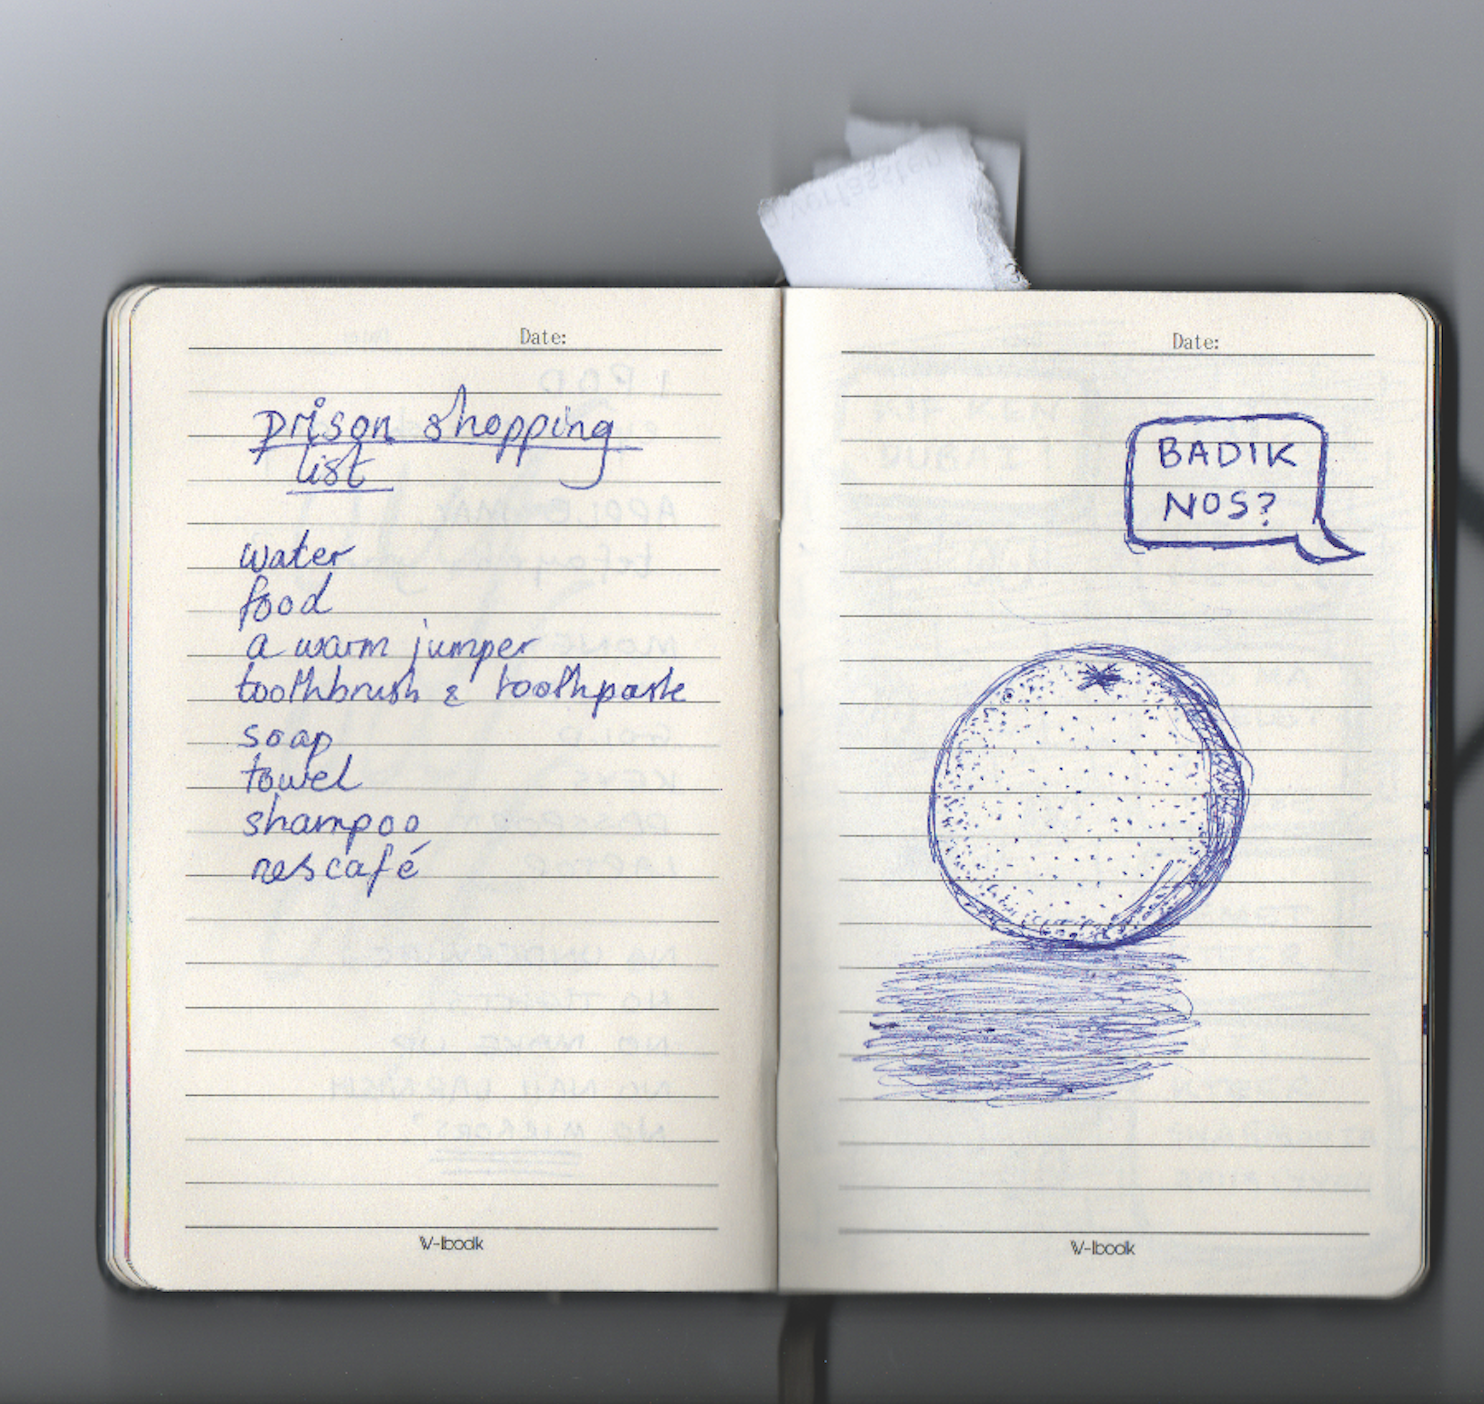 Date:
prison shopping
list
water
food
a warm jumper
toothbrush & toothpaste
soap
towel
shampoo
nescafé
W-book
Date:
BADIK
NOS?
W-book